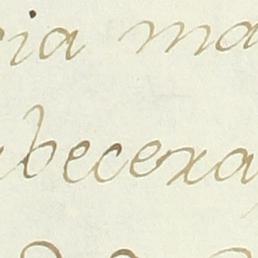 ria ma
becera